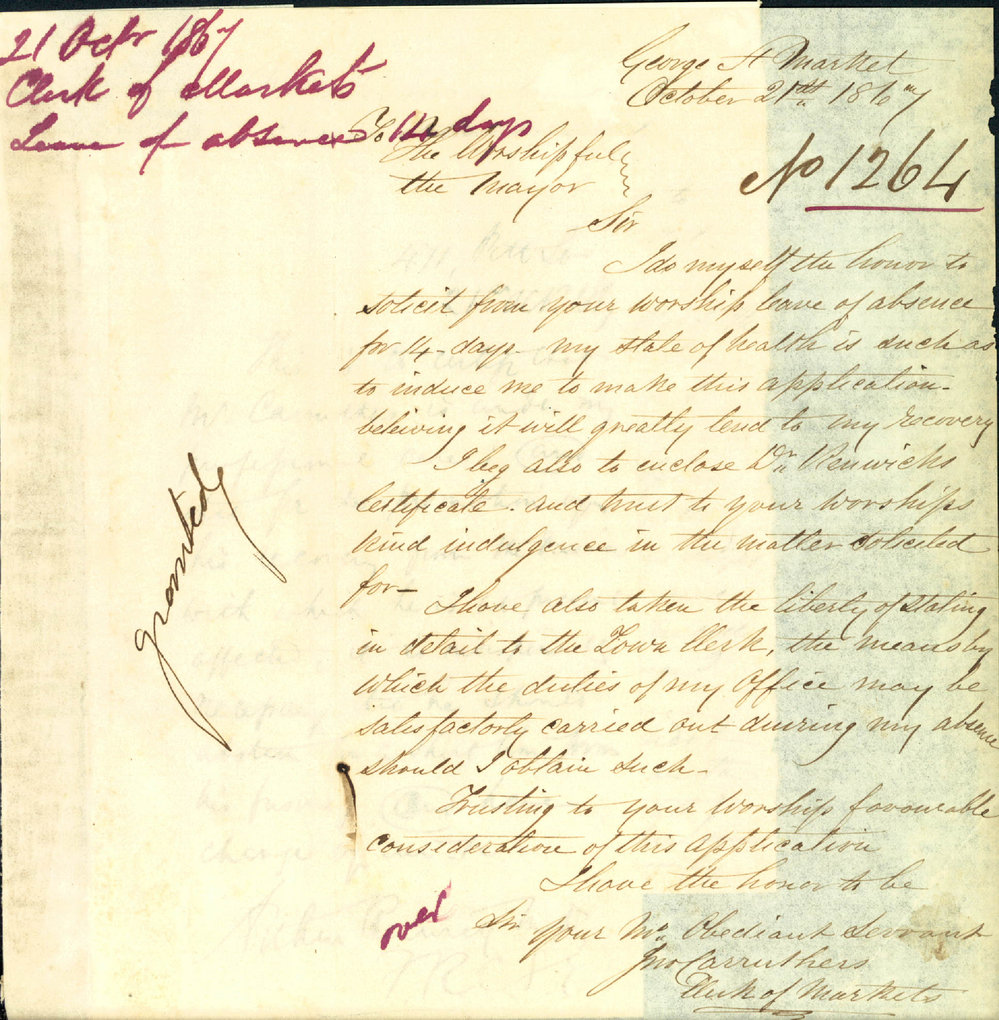 21 Octr 1867
Clerk of Markets
Leave of absence 14 days
George St Market
October 21st 1867
No 1264
To
The Worshipful
the Mayor
Sir
I do myself the honor to
solicit from your worship leave of absence
for 14 days - my state of health is such as
to induce me to make this application -
beleiving it will greatly tend to my recovery
I beg also to enclose Dr Renwicks
Certificate. and trust to your worships
kind indulgence in the matter solicited
for -
I have also taken the liberty of stating
in detail to the Town Clerk, the means by
which the duties of my Office may be
satisfactorly carried out during my absence
should I obtain such -
Trusting to your Worships favourable
consideration of this application
I have the honor to be
Sir your Mo Obediant Servant
Jno Carruthers
Clerk of Markets
granted
over